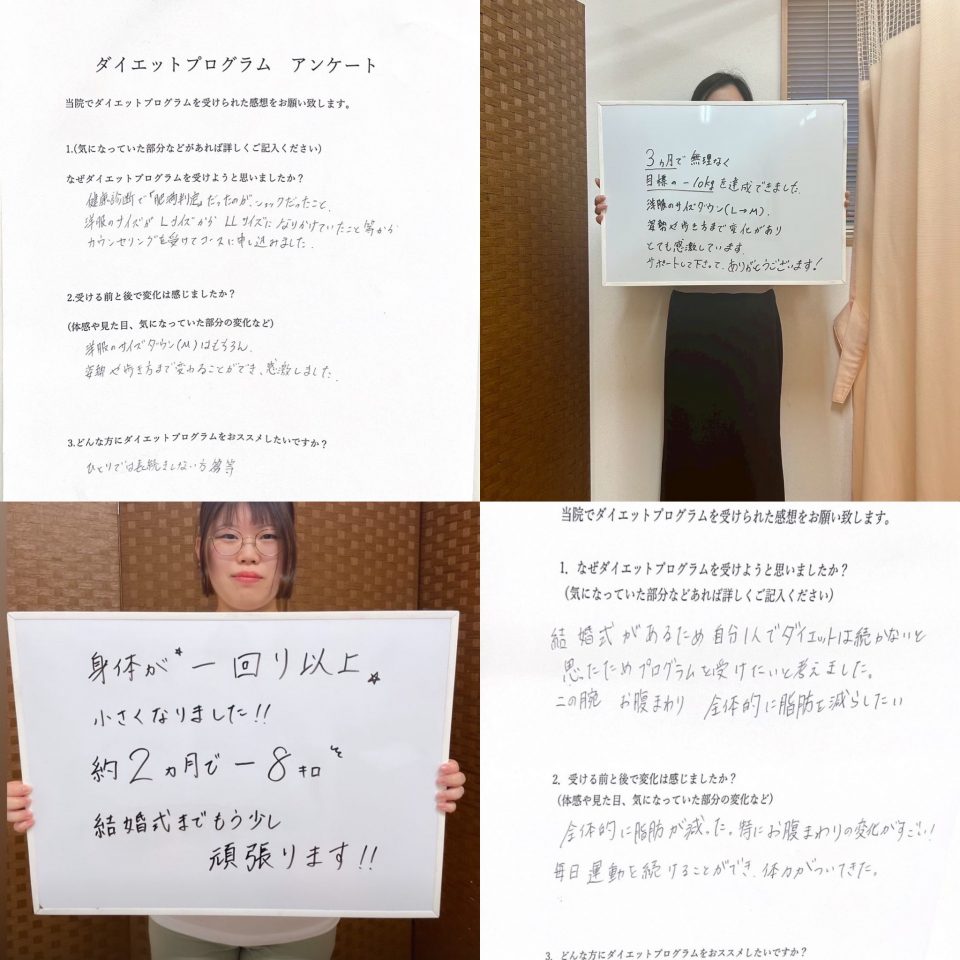 ダイエットプログラム アンケート
当院でダイエットプログラムを受けられた感想をお願い致します。
1.(気になっていた部分などがあれば詳しくご記入ください)
なぜダイエットプログラムを受けようと思いましたか?
健康診断で「肥満判定」だったのが、ショックだったこと、
洋服のサイズがLサイズからLLサイズになりかけていたこと等から
カウンセリングを受けてコースに申し込みました.
2.受ける前と後で変化は感じましたか?
(体感や見た目、気になっていた部分の変化など)
洋服のサイズダウン(M)はもちろん、
姿勢や歩き方まで変わることができ、感激しました.
3.どんな方にダイエットプログラムをおススメしたいですか?
ひとりでは長続きしない方 等
3ヵ月で無理なく
目標の-10kgを達成できました.
洋服のサイズダウン(L→M).
姿勢や歩き方まで変化があり
とても感激しています.
サポートして下さって、ありがとうございます!
身体が一回り以上
小さくなりました!!
約2ヵ月で-8キロ
結婚式までもう少し
頑張ります!!
当院でダイエットプログラムを受けられた感想をお願い致します。
1. なぜダイエットプログラムを受けようと思いましたか?
(気になっていた部分などあれば詳しくご記入ください)
結婚式があるため自分1人でダイエットは続かないと
思たためプログラムを受けたいと考えました。
二の腕 お腹まわり 全体的に脂肪を減らしたい
2. 受ける前と後で変化は感じましたか?
(体感や見た目、気になっていた部分の変化など)
全体的に脂肪が減った。特にお腹まわりの変化がすごい!
毎日運動を続けることができ、体力がついてきた。
3. どんな方にダイエットプログラムをおススメしたいですか?